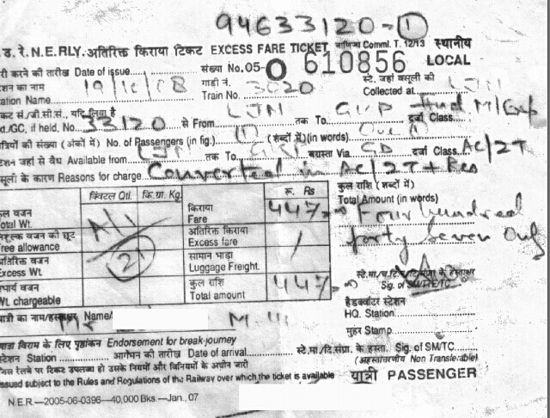 94633120-①
ड. रे. N.E.RLY. अतिरिक्त किराया टिकट EXCESS FARE TICKET वाणिज्य Comml. T. 12/13 स्थानीय
जारी करने की तारीख Date of issue संख्या No.05-O 610856 LOCAL
स्टेशन का नाम 19/10/08 गाड़ी नं. 3020 स्टे. जहां वसूली की LJN
Station Name Train No. Collected at
टिकट सं./जी.सी. सं., यदि लिया है LJN GKP
/GC, if held, No. 33120 से From तक To दर्जा Class
यात्रियों की संख्या (अंकों में) No. of Passengers (in fig.) (1) (शब्दों में)(in words) One
स्टेशन जहां से वैध Available from LJN तक To बरास्ता Via GD दर्जा Class AC/2T
वसूली के कारण Reasons for charge Converted in AC/2T + Res
क्विंटल Qtl. कि.ग्रा. Kg. रु. Rs कुल राशि (शब्दों में)
कुल वजन किराया 447 Total Amount (in words)
Total Wt. Fare Four hundred
निःशुल्क वजन की छूट अतिरिक्त किराया forty seven only
Free allowance Excess fare
अतिरिक्त वजन सामान भाड़ा
Excess Wt. Luggage Freight
प्रभार्य वजन कुल राशि 447
Wt. chargeable Total amount Sig. of
यात्री का नाम/हस्ताक्षर Name/ हैडक्वार्टर स्टेशन
HQ. Station
मुहर Stamp
यात्रा विराम के लिए पृष्ठांकन Endorsement for break-journey
स्टेशन Station आगमन की तारीख Date of arrival स्टे.मा/टि.संग्रा. के हस्ता. Sig. of SM/TC
(अहस्तांतरणीय Non Transferable)
जिस रेलवे पर टिकट उपलब्ध हो उसके नियमों और विनियमों के अधीन जारी
Issued subject to the Rules and Regulations of the Railway over which the ticket is available यात्री PASSENGER
N.E.R.—2005-06-0396—40,000 Bks.—Jan., 07